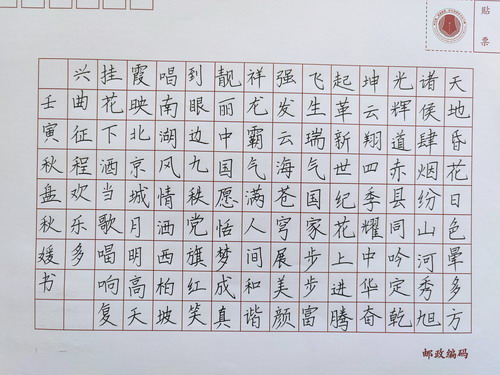 贴
票
天地昏花日色晕多方
诸侯肆烟纷山河秀旭
光辉道赤县同吟定乾
坤云翔四季耀中华奋
起革新世纪花上进腾
飞生瑞气国家步步富
强发云海苍穹展美颜
祥龙霸气满人间和谐
靓丽中国愿恬梦成真
到眼边九秩党旗红笑
唱南湖风情洒西柏坡
霞映北京城月明高天
挂花下洒当歌唱响复
兴曲征程欢乐多
壬寅秋盘秋媛书
邮政编码